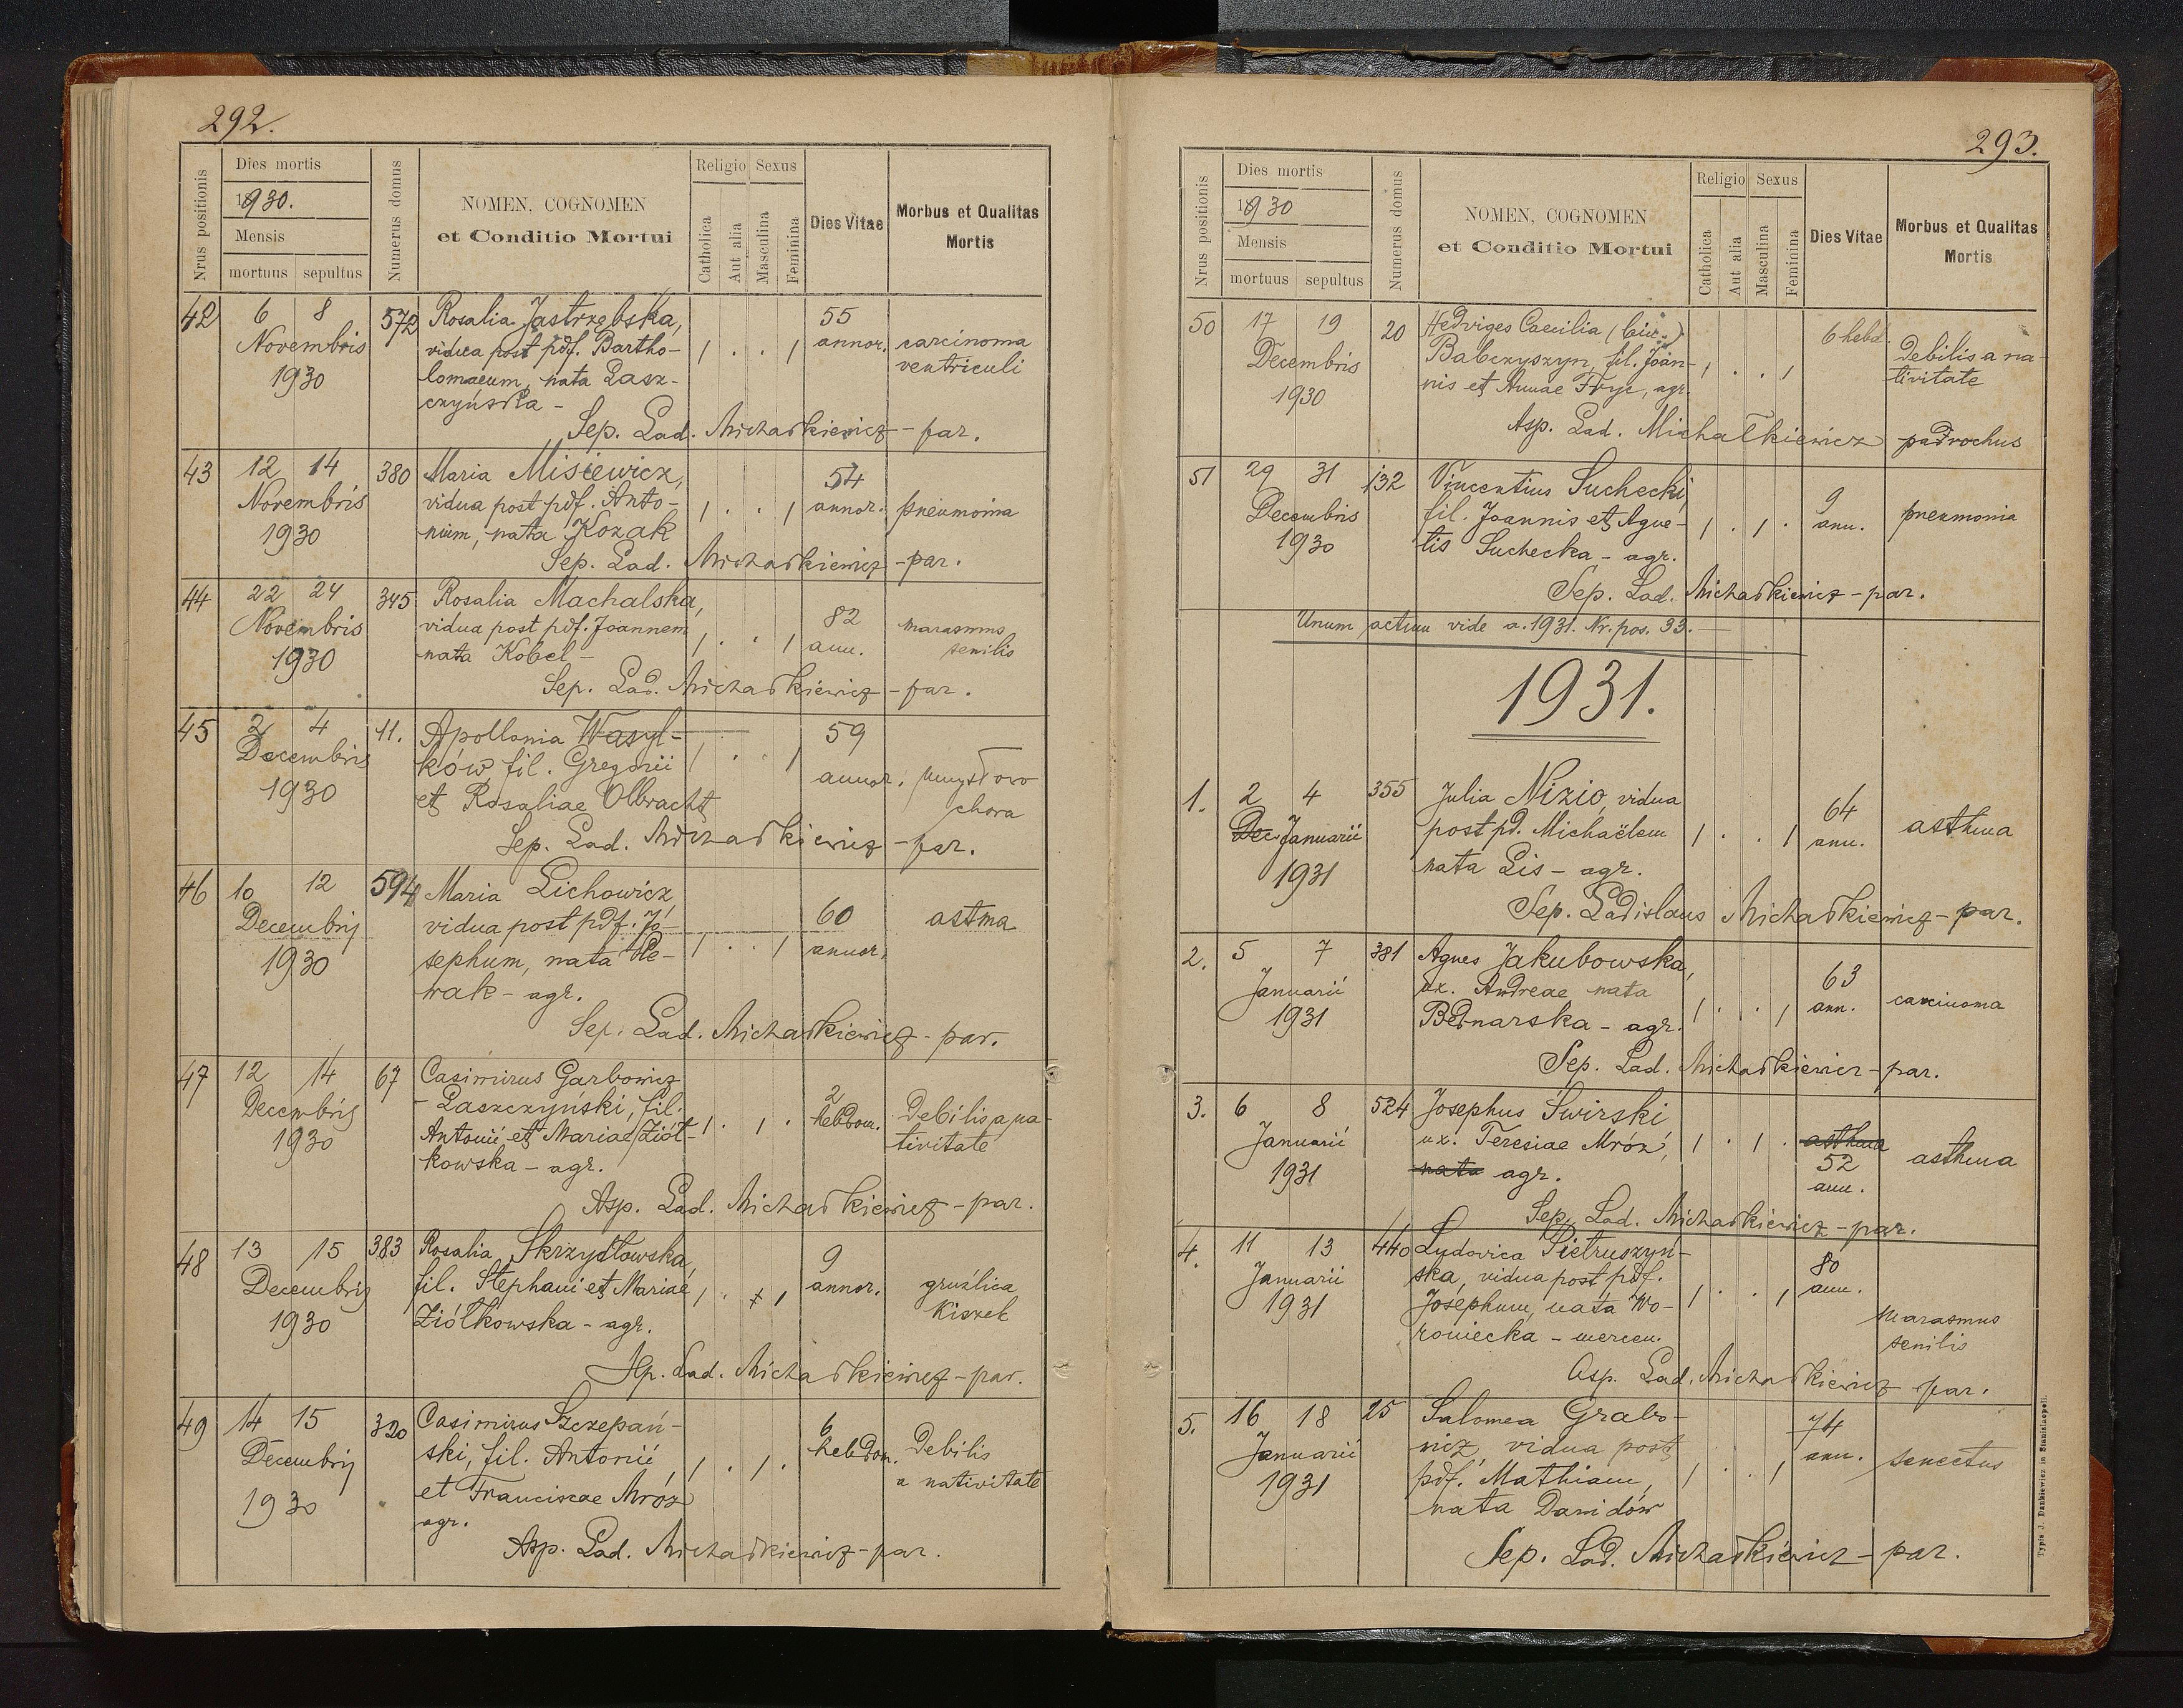 292.
Nrus positionis
Dies mortis
1930.
Mensis
mortuus sepultus
Numerus domus
NOMEN, COGNOMEN
et Conditio Mortui
Religio Sexus
Catholica
Aut alia
Masculina
Feminina
Dies Vitae
Morbus et Qualitas
Mortis
42 6 8 572 Rosalia Jastrzębska, 55
Novembris vidua post pdf. Bartho- 1 . . 1 annor. carcinoma
1930 lomaeum, nata Łasz- ventriculi
czyńska -
Sep. Lad. Michałkiewicz - par.
43 12 14 380 Maria Misiewicz, 54
Novembris vidua post pdf. Anto- 1 . . 1 annor. pneumonia
1930 nium, nata Kozak
Sep. Lad. Michałkiewicz - par.
44 22 24 345 Rosalia Machalska, 82
Novembris vidua post pdf. Joannem 1 . . 1 ann. marasmus
1930 nata Kobel - senilis
Sep. Lad. Michałkiewicz - par.
45 2 4 11. Apollonia Wasyl- 59
Decembris ków, fil. Gregorii 1 . . 1 annor. umysłowo
1930 et Rosaliae Olbracht chora
Sep. Lad. Michałkiewicz - par.
46 10 12 594 Maria Lichowicz,
Decembrij vidua post pdf. Jo- 60 astma
1930 sephum, nata Ple- 1 . . 1 annor.
wak - agr.
Sep. Lad. Michałkiewicz - par.
47 12 14 67 Casimirus Garbowicz 2
Decembrij - Łaszczyński, fil. hebdom. debilis a na-
1930 Antonii et Mariae Ziół- 1 . 1 . tivitate
kowska - agr.
Asp. Lad. Michałkiewicz - par.
48 13 15 383 Rosalia Skrzydłowska, 9
Decembrij fil. Stephani et Mariae 1 . 1 1 annor. gruźlica
1930 Ziółkowska - agr. kiszek
Sep. Lad. Michałkiewicz - par.
49 14 15 320 Casimirus Szczepań- 6
Decembrij ski, fil. Antonii 1 . 1 . hebdom. debilis
1930 et Franciscae Mróz a nativitate
agr.
Asp. Lad. Michałkiewicz - par.
293.
Nrus positionis
Dies mortis
1930
Mensis
mortuus sepultus
Numerus domus
NOMEN, COGNOMEN
et Conditio Mortui
Religio Sexus
Catholica
Aut alia
Masculina
Feminina
Dies Vitae
Morbus et Qualitas
Mortis
50 17 19 20 Hedviges Caecilia 6 hebd.
Decembris Babczyszyn, fil. Joan- 1 . . 1 debilis a na-
1930 nis et Annae Fryc, agr. tivitate
Asp. Lad. Michałkiewicz parochus
51 29 31 132 Vincentius Suchecki, 9
Decembris fil. Joannis et Agne- 1 . 1 . ann. pneumonia
1930 tis Suchecka - agr.
Sep. Lad. Michałkiewicz - par.
Unum actum vide a. 1931. Nr. pos. 33. -
1931.
1. 2 4 355 Julia Nizio, vidua 64
Dec Januarii post pd. Michaëlem 1 . . 1 ann. asthma
1931 nata Lis - agr.
Sep. Ladislaus Michałkiewicz - par.
2. 5 7 381 Agnes Jakubowska, 63
Januarii ux. Andreae nata 1 . . 1 ann. carcinoma
1931 Bednarska - agr.
Sep. Lad. Michałkiewicz - par.
3. 6 8 524 Josephus Świrski
Januarii ux. Teresiae Mróz, 1 . 1 . asthma asthma
1931 nata agr. 52
ann.
Sep. Lad. Michałkiewicz - par.
4. 11 13 440 Ludovica Pietruszyń- 80
Januarii ska, vidua post pdf. ann.
1931 Josephum, nata Wo- 1 . . 1 marasmus
roniecka - mercen. senilis
Asp. Lad. Michałkiewicz par.
5. 16 18 25 Salomea Grabo- 74
Januarii wicz, vidua post ann. senectus
1931 pdf. Mathiam, 1 . . 1
nata Dawidów
Sep. Lad. Michałkiewicz - par.
Typis J. Dankiewicz in Stanislaopoli.